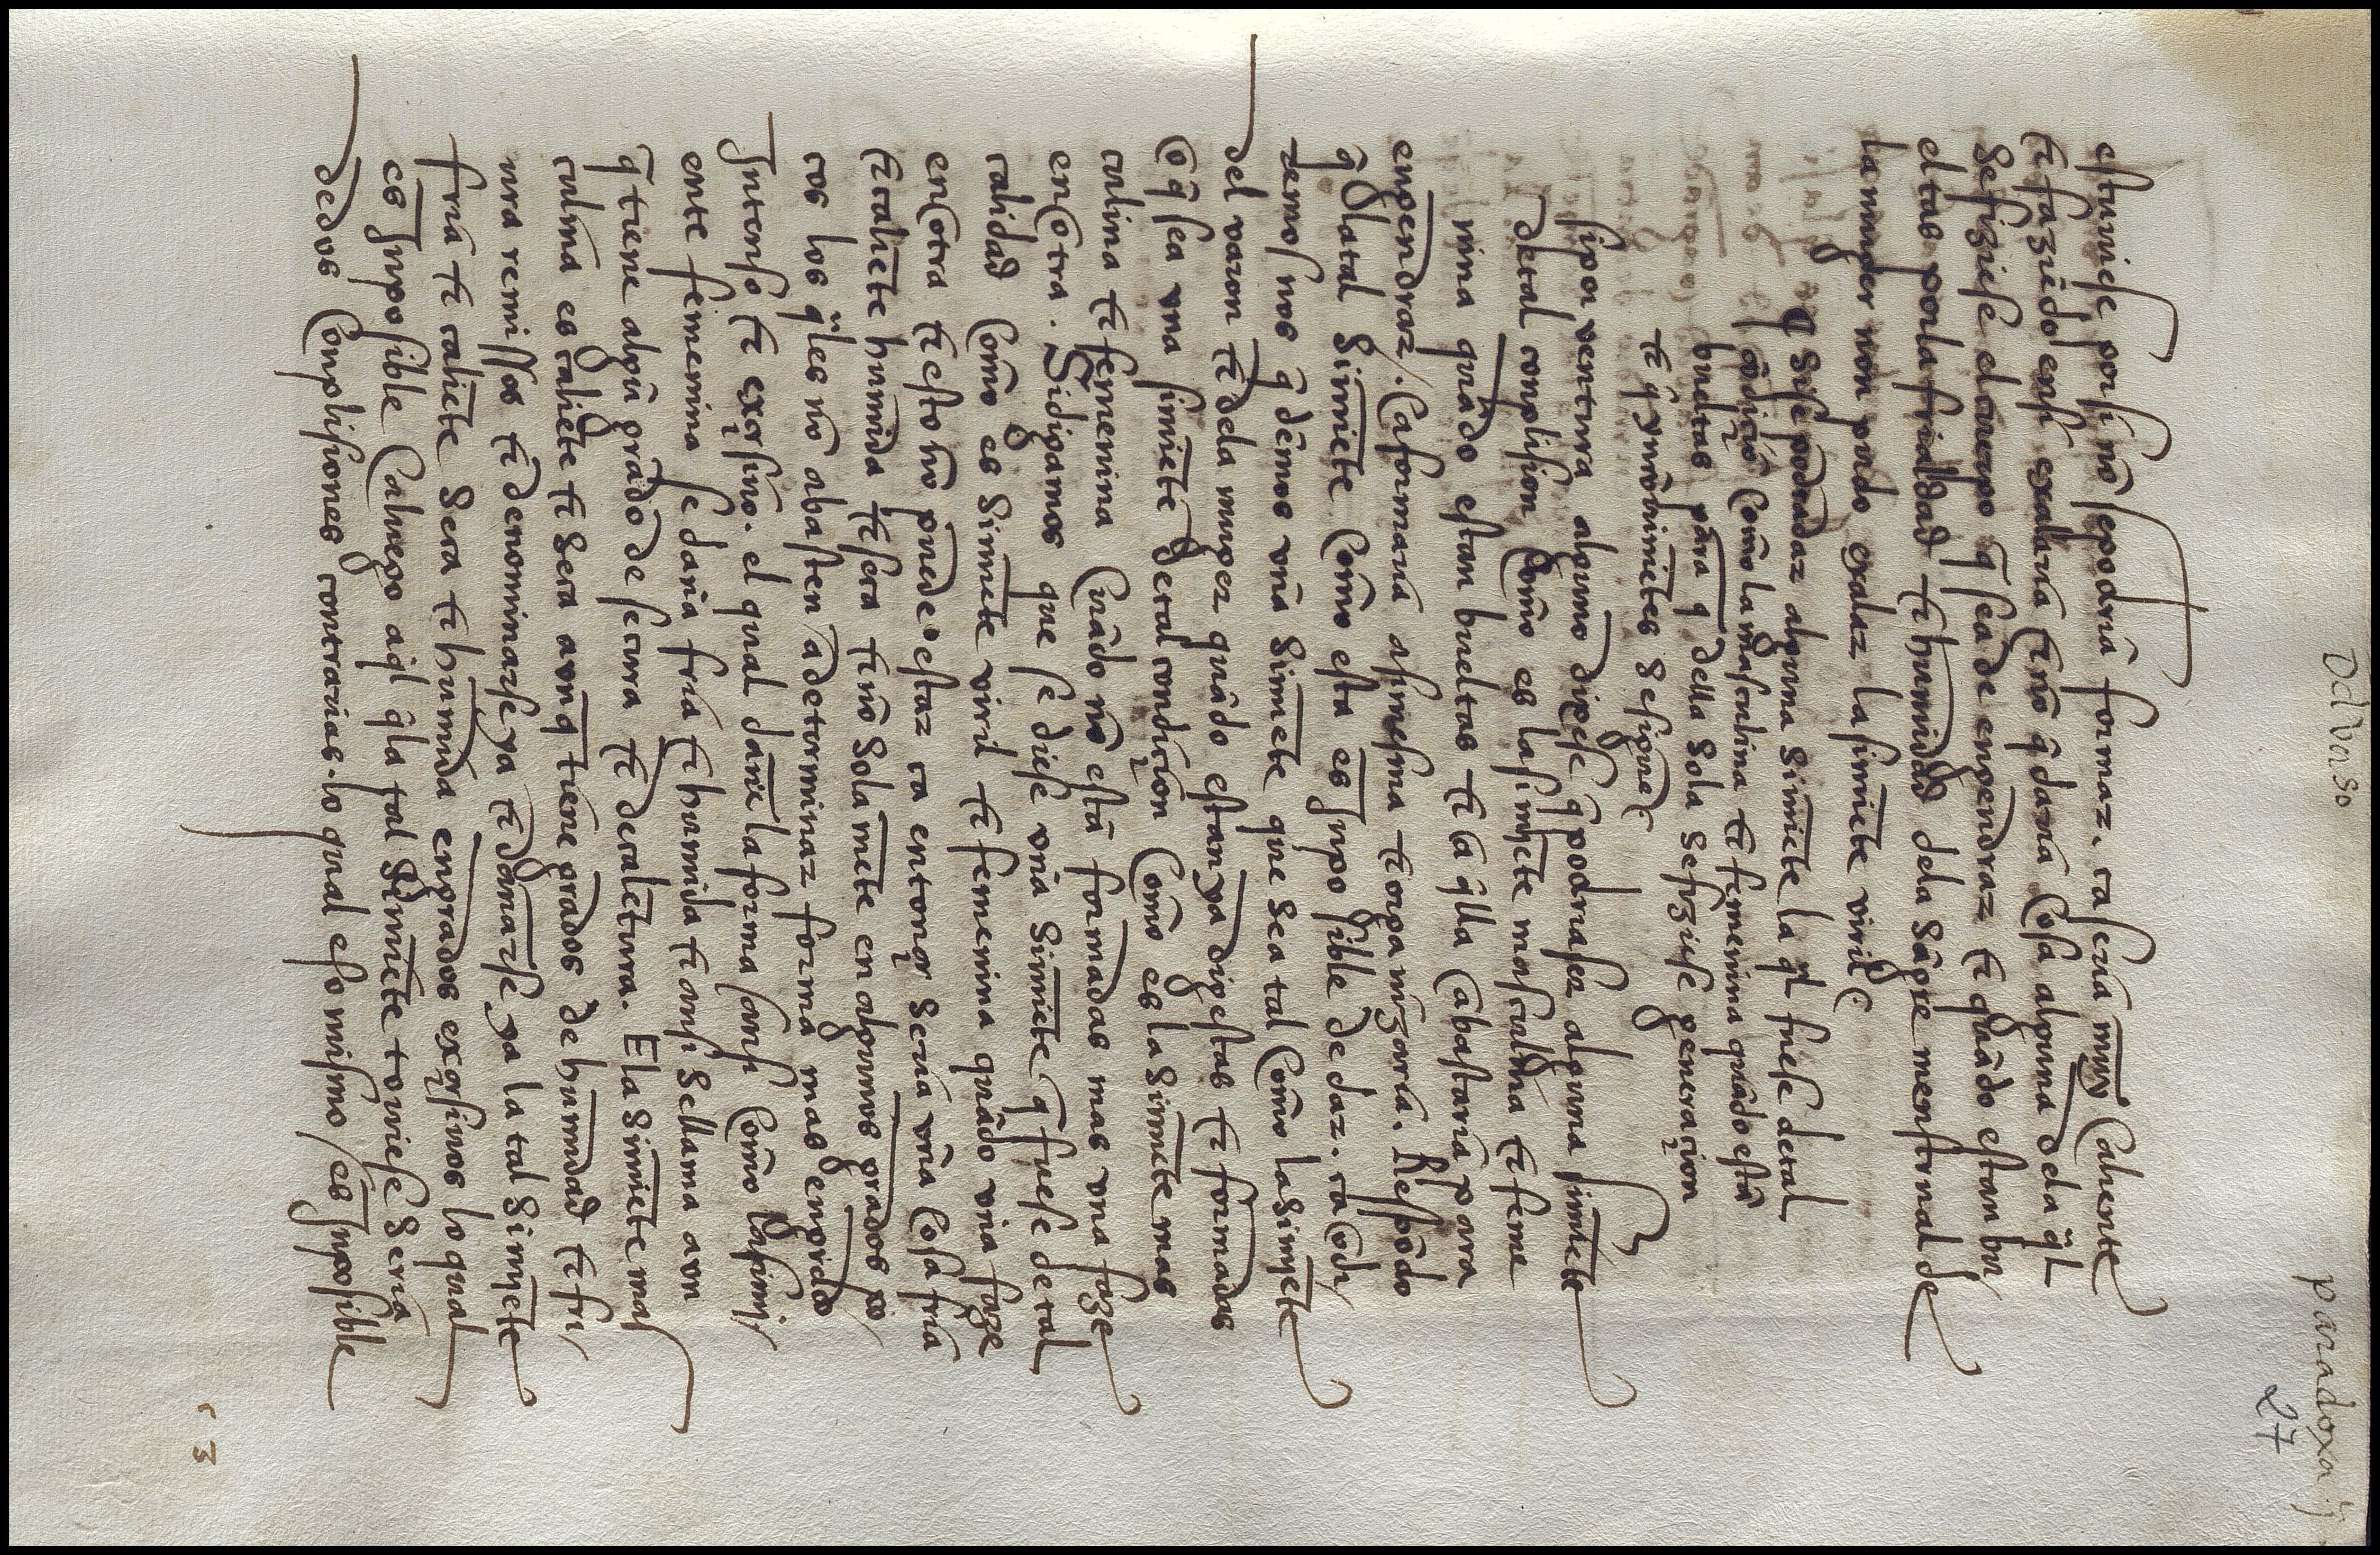 Del Vaso paradoxa ij
27
estuuiese por si nõ se podria formar. ca seria muy caliente
τ fazíẽdo ensi exalaria τ nõ q̃daria cosa alguna dela q̃l
se fiziese el cuerpo q̃ sea de engendrar τ quãdo estan bu
eltas por la frialdad τ humidad dela sãgre menstrual de
la muger non pudo exalar la simiẽte viril
¶ Si se podra dar alguna simiẽte la q̃l fuese de tal
cõdiçiõ como la masculina τ femenina quãdo estã
bueltas para q̃ della sola se fiziese generaçion
τ q̃ ynconuinientes se sigue
si por ventura alguno dixese q̃ podria ser alguna simiẽte
de tal conplision como es la simiẽte masculina τ feme
nina quãdo estan bueltas τ aq̃lla cabastaria para
engendrar. Ca formaria asimesma τ organizaria. Respõdo
q̃ la tal simiẽte como esta es Inposible de dar. caode
zemos nos q̃ demos vna simiẽte que sea tal como la simiẽte
del varon τ dela muger quãdo estan ya digestas τ formadas
O q̃ sea vna simiẽte de tal condiçion como es la simiẽte mas
culina τ femenina quãdo nõ estã formadas mas vna faze
en otra. Si digamos que se diese vna simiẽte q̃ fuese de tal
calidad como es simiẽte viril τ femenina quãdo vna faze
en otra τ esto nõ puede estar ca entonçe seria vna cosa fria
τ caliẽte humida τ seca τ nõ sola mẽte en algunos grados po
cos los q̃les nõ abasten a determinar forma mas en grado
Intenso τ exçesiuo. el qual dariẽ la forma ansi como la simi
ente femenina se daria fria τ humida τ ansi se llama aun
q̃ tiene algũ grado de secura τ de caletura. E la simiẽte mas
culina es caliẽte τ seca aunq̃ tiene grados de humidad τ fri
ura remissos τ denominarse ya τ damarse ya la tal simiẽte
fria τ caliẽte seca τ humida en grados exçesiuos lo qual
es Inposible Ca luego aq̃l q̃ la tal simiẽte touiese seria
de dos Conplisiones contrarias. lo qual eso mismo / es Inposible
c 3